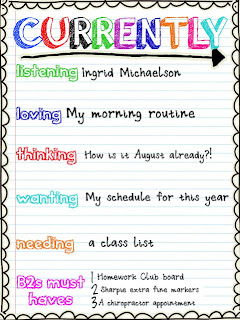 CURRENTLY
listening Ingrid Michaelson
loving My morning routine
thinking How is it August already?!
wanting My schedule for this year
needing a class list
B2s must haves
1 Homework Club board
2 Sharpie extra fine markers
3 A chiropractor appointment